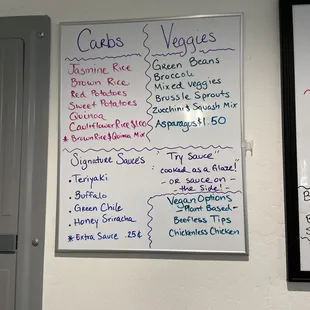 Carbs
Jasmine Rice
Brown Rice
Red Potatoes
Sweet Potatoes
Quinoa
Cauliflower Rice $1.00
* Brown Rice & Quinoa Mix
Veggies
Green Beans
Broccoli
Mixed veggies
Brussle Sprouts
Zucchini & Squash Mix
Asparagus 1.50
Signature Sauces
• Teriyaki
• Buffalo
• Green Chile
• Honey Sriracha
* Extra Sauce .25¢
"Try Sauce"
cooked as a Glaze!
- or sauce on -
- the Side! -
Vegan Options
- Plant Based -
Beefless Tips
Chickenless Chicken